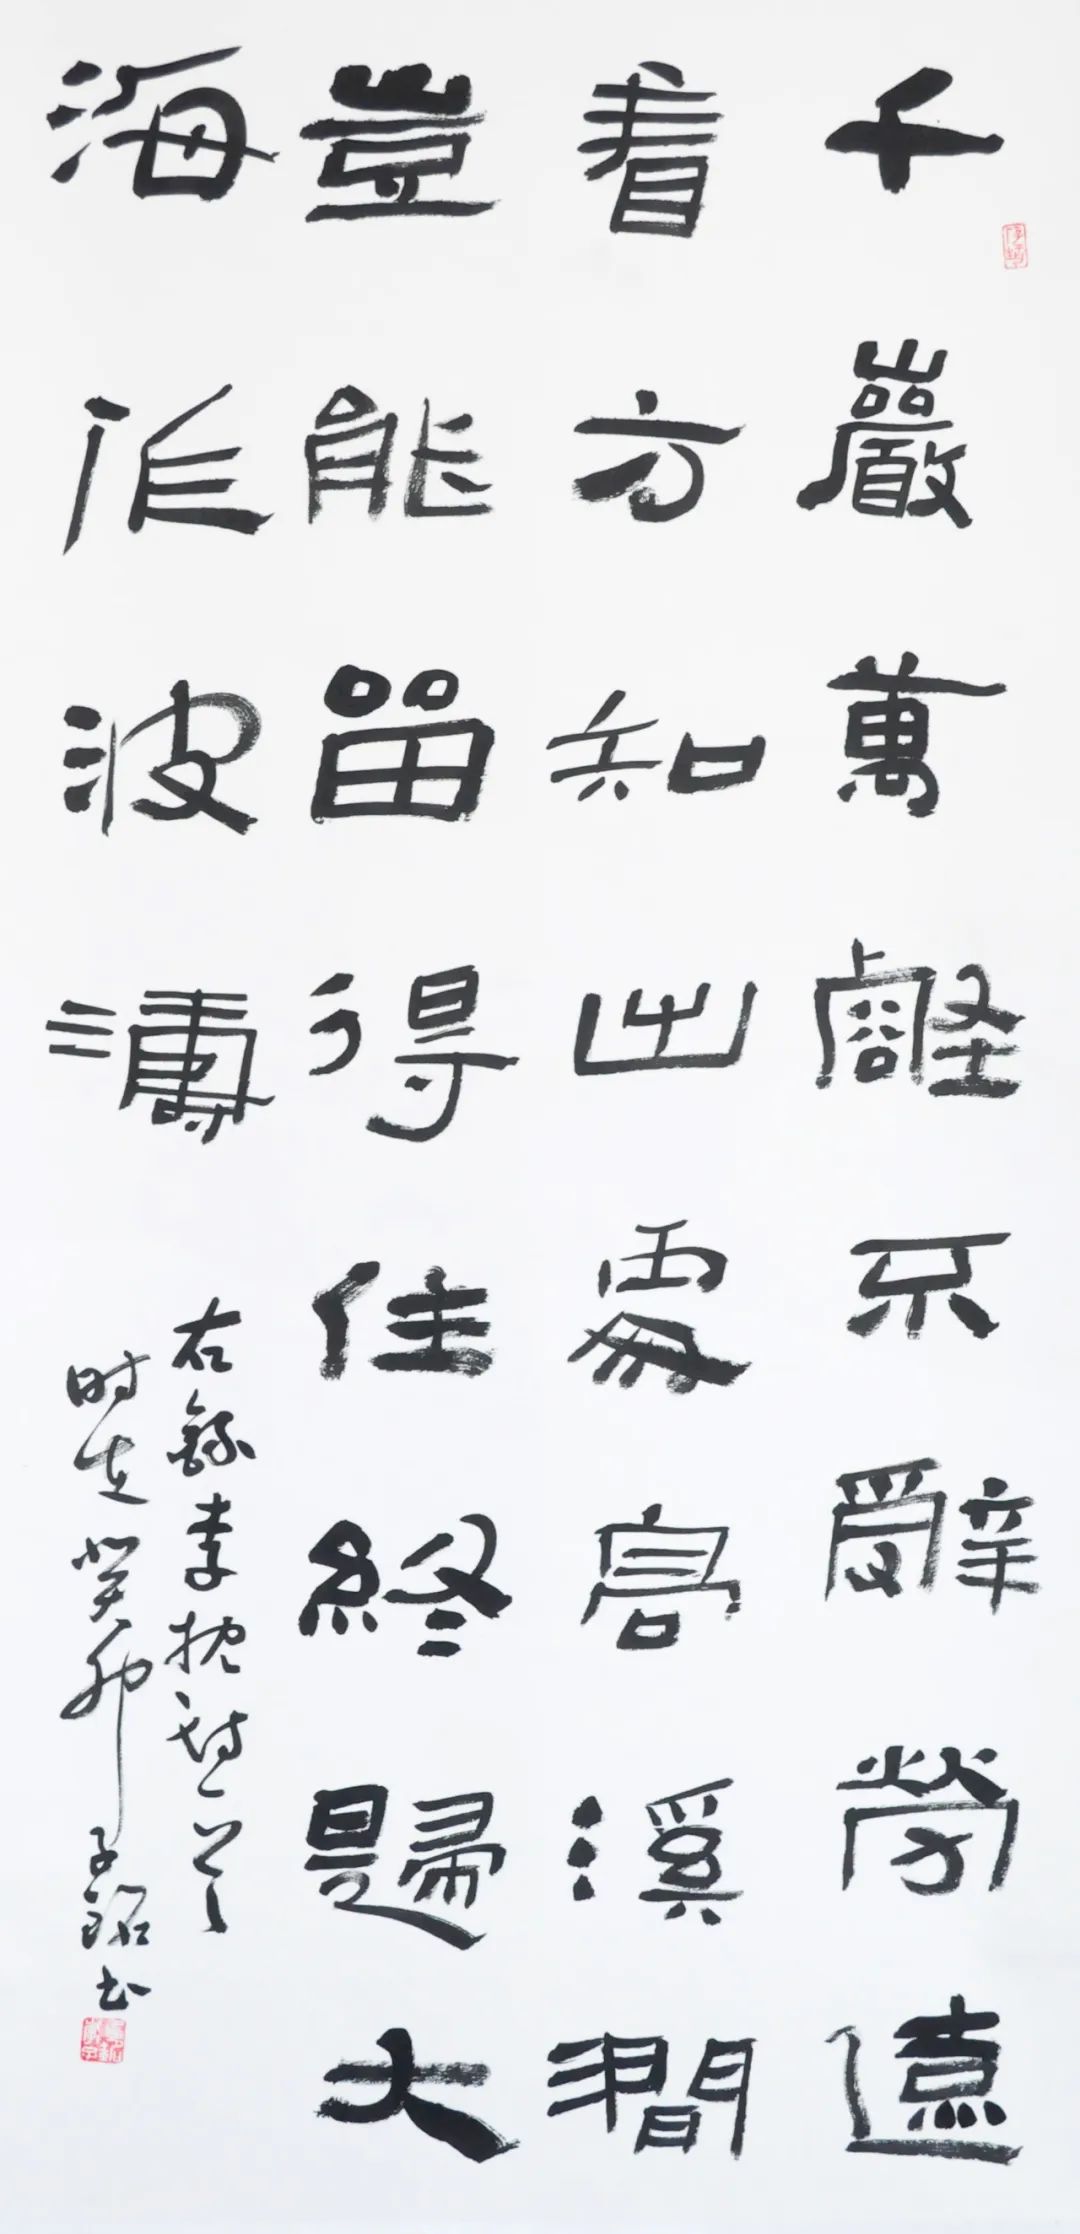 千巖萬壑不辭勞遠
看方知出處高溪澗
豈能留得住終歸大
海作波濤
右錄李忱诗一首
时在癸卯子书